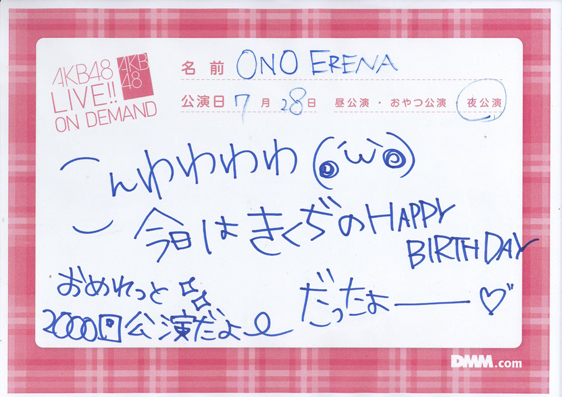 AKB48
LIVE!!
ON DEMAND
AKB
48
名前 ONO ERENA
公演日 7月28日 昼公演・おやつ公演・夜公演
こんわわわわ(◎´ω`◎)
今日はきくぢのHAPPY
BIRTHDAY
おめれっと
だったよーーー♡"
2000回公演だよ
DMM.com